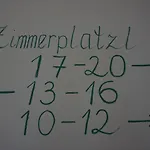 Zimmerplatzl
17-20 —
— 13-16
10-12 →